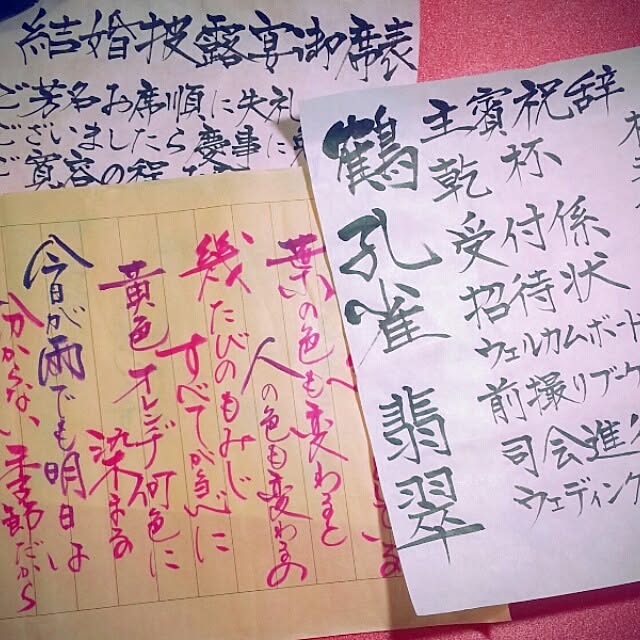 結婚披露宴御席表
ご芳名お席順に失礼
ございましたら慶事に
ご寛容の程
主賓祝辞
乾杯
受付係
招待状
ウェルカムボード
前撮りブーケ
司会進
ウェディング
鶴
孔雀
翡翠
葉の色も変わると
人の色も変わるの
幾たびのもみじ
すべてが当べに
黄色オレンヂ何色に
染まる
今日が雨でも明日は
分からない季節だから